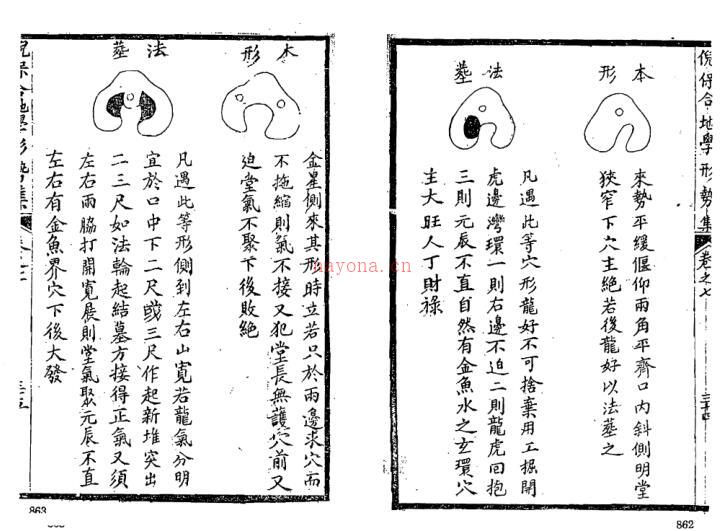 倪保合地學形勢集
卷之七
三十四
本形
來勢平緩偃仰兩角平齊口內斜側明堂
狹窄下穴主絕若後龍好以法葬之
法葬
凡遇此等穴形龍好不可捨棄用工掘開
虎邊灣環一則右邊不迫二則龍虎回抱
三則元辰不直自然有金魚水之玄環穴
主大旺人丁財祿
862
本形
金星側來其形時立若只於兩邊求穴而
不拖縮則氣不接又犯堂長無護穴前又
迫堂氣不聚下後敗絕
法葬
凡遇此等形側到左右山寬若龍氣分明
宜於口中下二尺或三尺作起新堆突出
二三尺如法輪起結墓方接得正氣又須
左右兩脇打開寬展則堂氣聚元辰不直
左右有金魚界穴下後大發
倪保合地學形勢集
三十五
863
nayona.cn